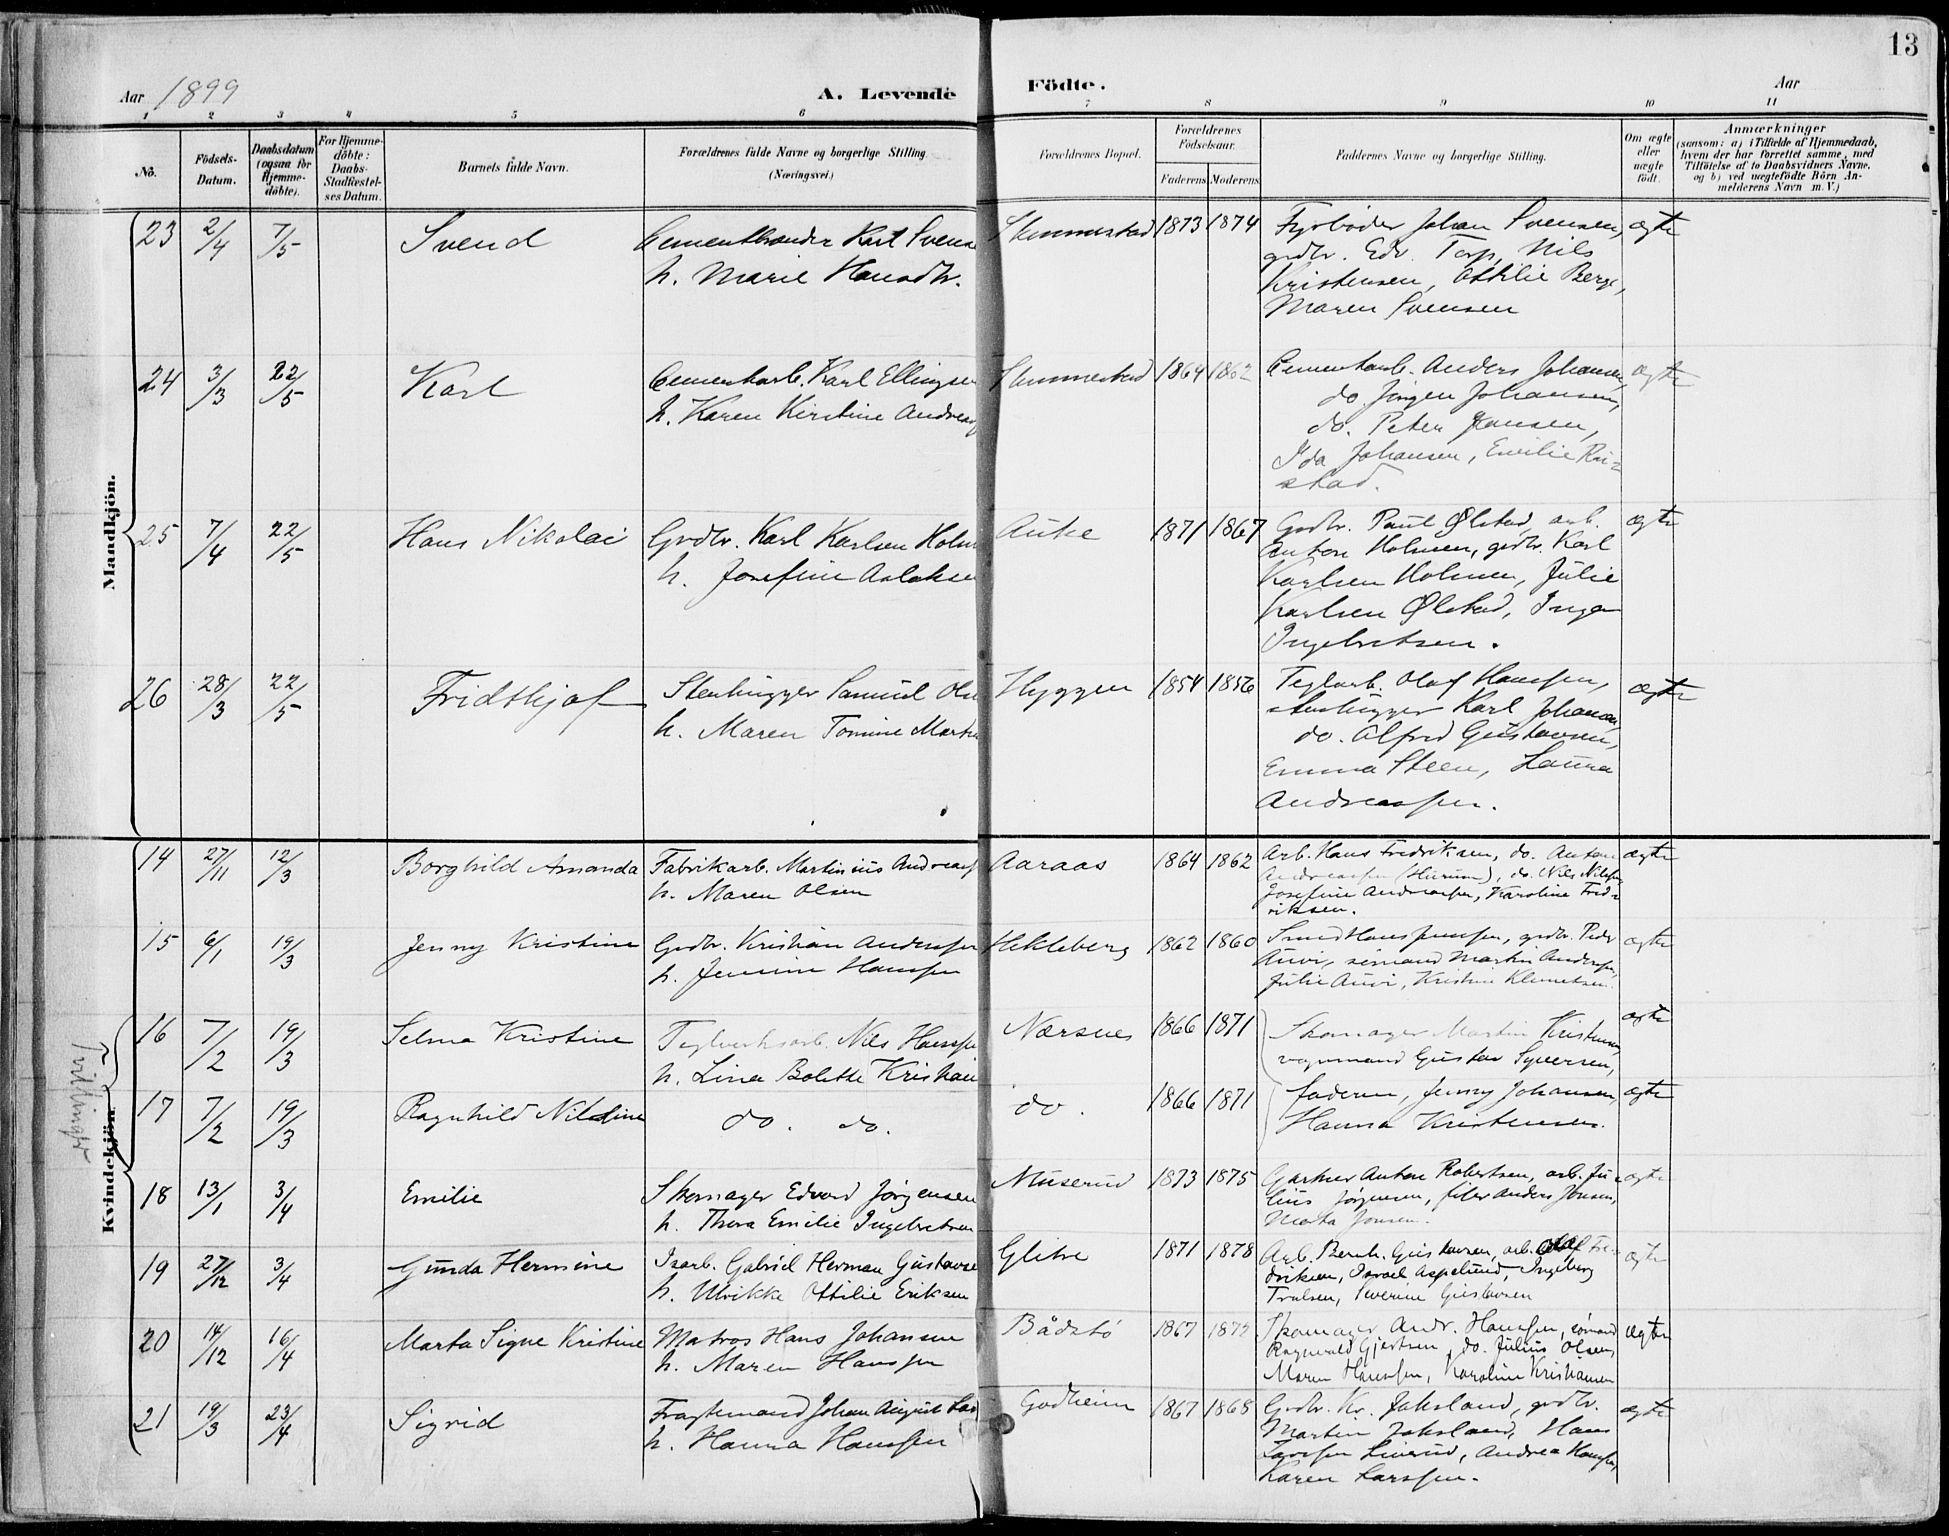 13
Aar 1899
A. Levende
Födte.
Aar
1 2 3 4 5 6 7 8 9 10 11
No.
Födsels-Datum.
Daabsdatum (ogsaa for Hjemme-döbte).
For Hjemme-döbte: Daabs-Stadfæstel-ses Datum.
Barnets fulde Navn.
Forældrenes fulde Navne og borgerlige Stilling. (Næringsvei.)
Forældrenes Bopæl.
Forældrenes Födselsaar.
Faderens Moderens
Faddernes Navne og borgerlige Stilling.
Om ægte eller uægte födt.
Anmærkninger
(saasom: a) i Tilfælde af Hjemmedaab,
hvem der har forrettet samme, med
Tilföielse af to Daabsvidners Navne.
og b) ved uægtefödte Börn An-
melderens Navn m. V.)
Mandkjön.
23 2/4 7/5 Svend Cementbrænder Karl Svens 1873 1874 Fyrbøder Johan Svensen, ægte
h. Marie Hansdtr. grdbr. Edv. Torp, Nils
Kristensen, Ottilie Berge,
Maren Svensen
24 3/3 22/5 Karl Cementarb. Karl Ellingsen Slemmestad 1864 1862 Cementarb. Anders Johansen, ægte
h. Karen Kirstine Andreas do. Jörgen Johansen,
do. Peter Hansen,
Ida Johansen, Emilie Rui-
stad.
25 7/4 22/5 Hans Nikolai Grdbr. Karl Karlsen Holm Auke 1871 1867 Grdbr. Paul Ølstad, arb. ægte
h. Josefine Aslaksen Anton Holmen, grdbr. Karl
Karlsen Holmen, Julie
Karlsen Ølstad, Inga
Ingebretsen.
26 28/3 22/5 Fridthjof Stenhugger Samuel Ols Hyggen 1854 1856 Teglarb. Olaf Hanssen, ægte
h. Maren Tomine Martin stenhugger Karl Johansen,
do. Alfred Gustavsen,
Emma Steen, Laura
Andreassen.
Kvindekjön.
14 27/11 12/3 Borghild Amanda Fabrikarb. Martinius Andreass Aaraas 1864 1862 Arb. Hans Fredriksen, do. Anton ægte
h. Maren Olsen Andreassen (Hurum), do. Nils Nilssen,
Josefine Andreassen, Karoline Fred-
riksen.
15 6/1 19/3 Jenny Kristine Grdbr. Kristian Anderssen Hekleberg 1862 1860 grdbr. Peder ægte
h. Jensine Hanssen Auvi, sömand Martin Anderssen,
Julie Auvi, Kristine Klemetsen.
Tvillinger
16 7/2 19/3 Selma Kristine Teglverksarb. Nils Hanssen Nærsnes 1866 1871 Skomager Martin Kristensen, ægte
h. Lina Bolette Kristian vognmand Gustav Syversen,
17 7/2 19/3 Ragnhild Nilsine do. do. do. 1866 1871 faderen, Jenny Johansen, ægte
Hanna Kristensen.
18 13/1 3/4 Emilie Skomager Edvard Jörgensen Müserud 1873 1875 Gartner Anton Robertsen, arb. Ju- ægte
h. Thora Emilie Ingebretsen lius Jørgensen, filer Anders Jonsen,
Marta Jonsen.
19 27/12 3/4 Gunda Hermine Isarb. Gabriel Herman Gustavse Glitre 1871 1878 Arb. Bernh. Gustavsen, arb. Olaf Fre- ægte
h. Ulrikke Ottilie Eriksen driksen, Israel Aspelund, Ingeborg
Trulsen, Severine Gustavsen
20 14/12 16/4 Marta Signe Kristine Matros Hans Johansen Bådstø 1867 Skomager Andr. Hanssen, sømand ægte
h. Maren Hanssen Ragnvald Gjertsen, do. Julius Olsen,
Maren Hanssen, Karoline Kristiansen
21 19/3 23/4 Sigrid Fragtemand Johan August Lar Godheim 1867 1868 Grdbr. Kr. Jaksland, grdbr. ægte
h. Hanna Hanssen Martin Jaksland, Hans
Larssen Linerud, Andrea Hanssen,
Karen Larssen.